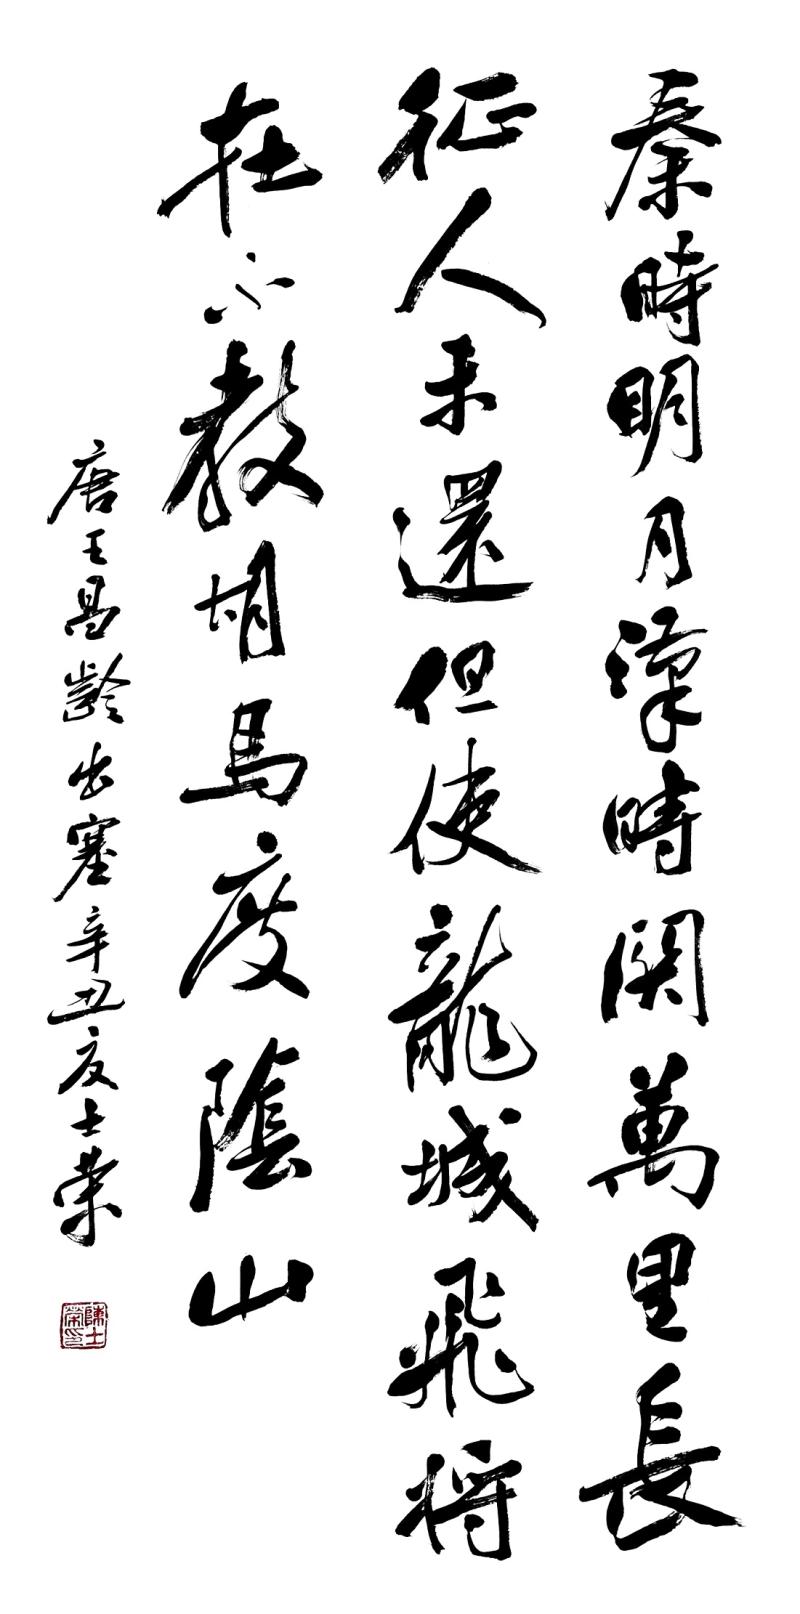 秦時明月漢時関萬里長
征人未還但使龍城飛将
在不教胡馬度陰山
唐王昌齡出塞辛丑夏士荣
陳士荣印